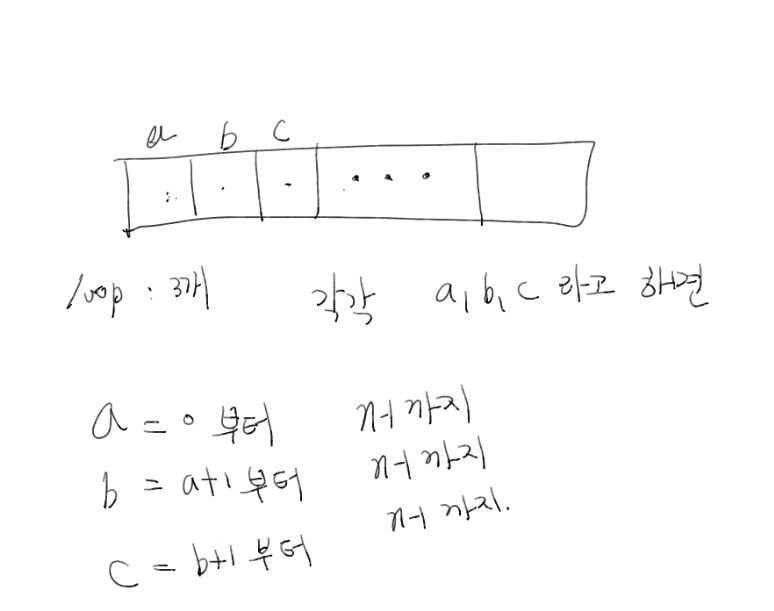 a b c
loop : 3개 각각 a, b, c 라고 하면
a = 0 부터 n-1 까지
b = a+1 부터 n-1 까지
c = b+1 부터 n-1 까지.